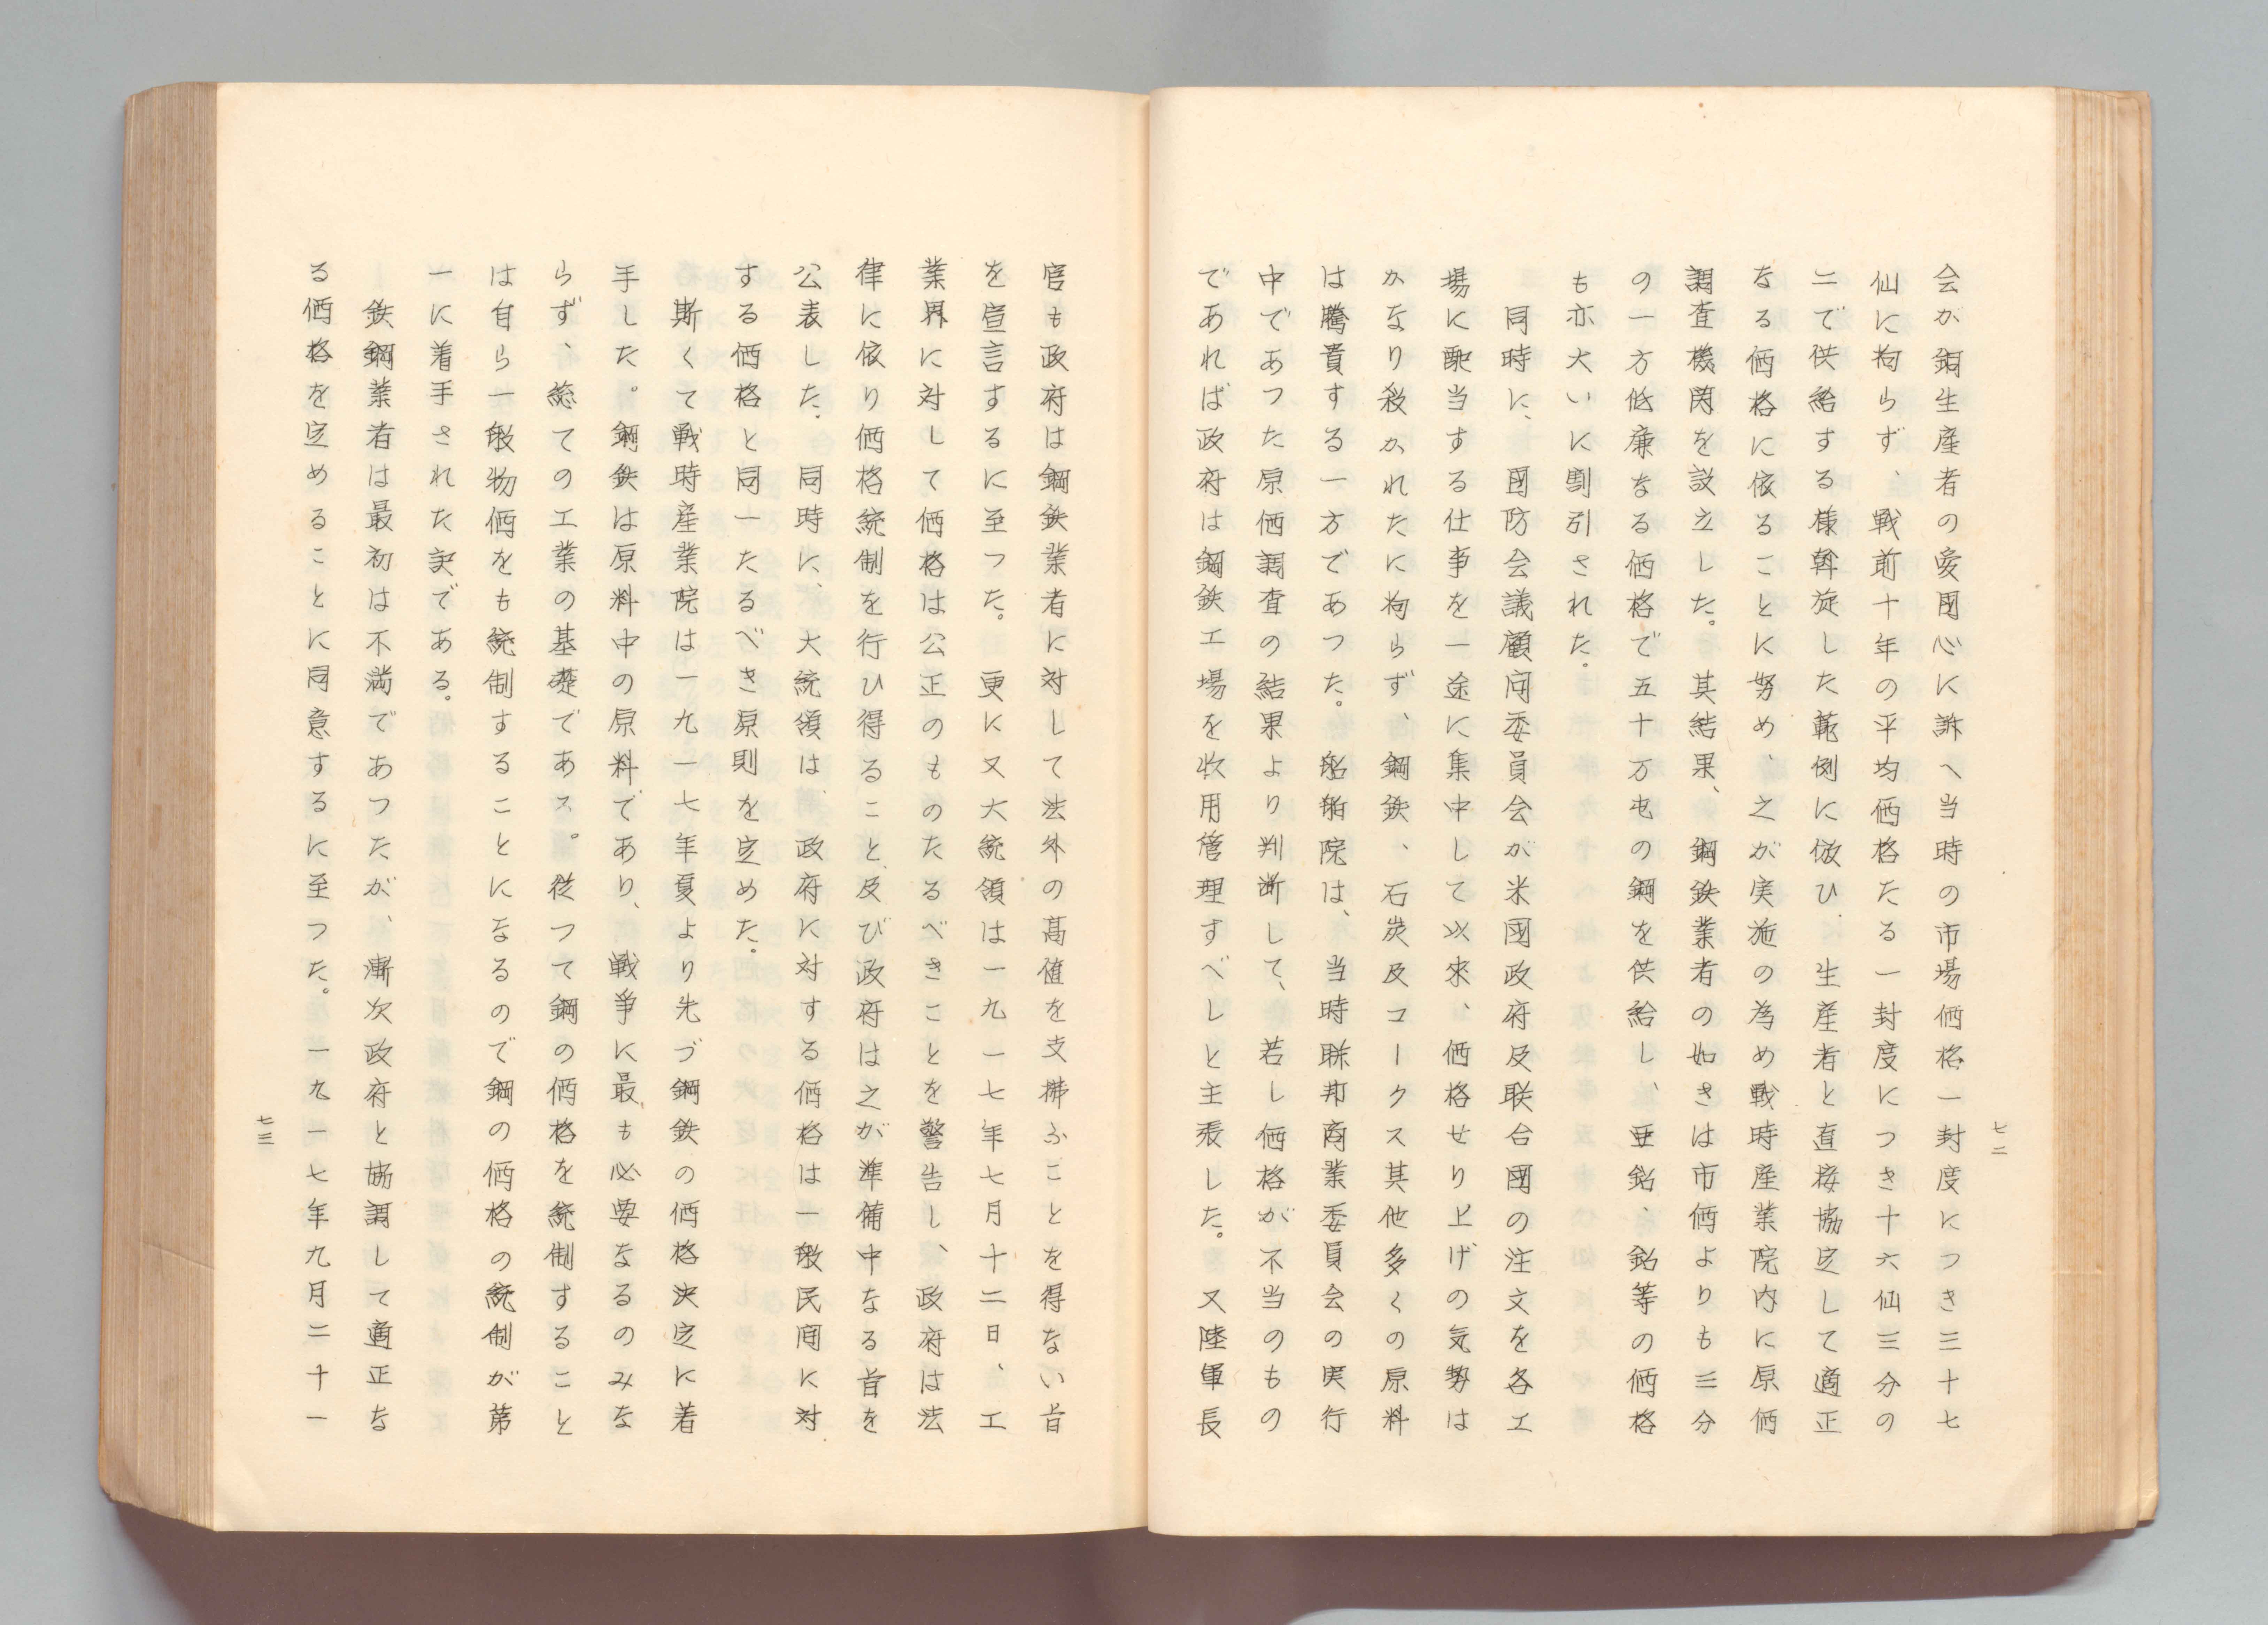 七二
会が銅生産者の愛国心に訴へ当時の市場価格一封度につき三十七
仙に拘らず、戦前十年の平均価格たる一封度につき十六仙三分の
二で供給する様斡旋した範例に倣ひ、生産者と直接協定して適正
なる価格に依ることに努め、之が実施の為め戦時産業院内に原価
調査機関を設立した。其結果、鋼鉄業者の如きは市価よりも三分
の一方低廉なる価格で五十万屯の鋼を供給し、亜鉛、鉛等の価格
も亦大いに割引された。
同時に、国防会議顧問委員会が米國政府及联合國の注文を各工
場に配当する仕事を一途に集中して以来、価格せり上げの気勢は
かなり殺かれたに拘らず、鋼鉄、石炭及コークス其他多くの原料
は騰貴する一方であつた。船舶院は、当時联邦商業委員会の実行
中であつた原価調査の結果より判断して、若し価格が不当のもの
であれば政府は鋼鉄工場を收用管理すべしと主張した。又陸軍長
官も政府は鋼鉄業者に対して法外の高値を支拂ふことを得ない旨
を宣言するに至つた。更に又大統領は一九一七年七月十二日、工
業界に対して価格は公正のものたるべきことを警告し、政府は法
律に依り価格統制を行ひ得ること、及び政府は之が準備中なる旨を
公表した。同時に、大統領は、政府に対する価格は一般民間に対
する価格と同一たるべき原則を定めた。
斯くて戦時産業院は一九一七年夏より先づ鋼鉄の価格決定に着
手した。鋼鉄は原料中の原料であり、戦争に最も必要なるのみな
らず、総ての工業の基礎であス。従つて鋼の価格を統制すること
は自ら一般物価をも統制することになるので鋼の価格の統制が第
一に着手された訳である。
鉄鋼業者は最初は不満であつたが、漸次政府と協調して適正な
る価格を定めることに同意するに至つた。一九一七年九月二十一
七三